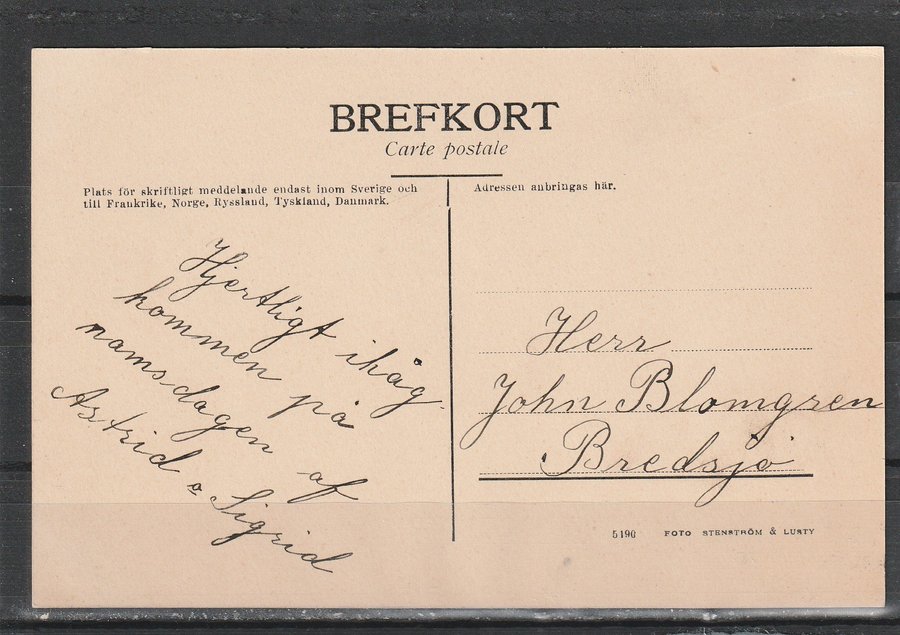 BREFKORT
Carte postale
Plats för skriftligt meddelande endast inom Sverige och
till Frankrike, Norge, Ryssland, Tyskland, Danmark.
Adressen anbringas här.
Hjertligt ihåg
kommen på
namsdagen af
Astrid o Sigrid
Herr
John Blomgren
Bredsjö
5190 FOTO STENSTRÖM & LUSTY